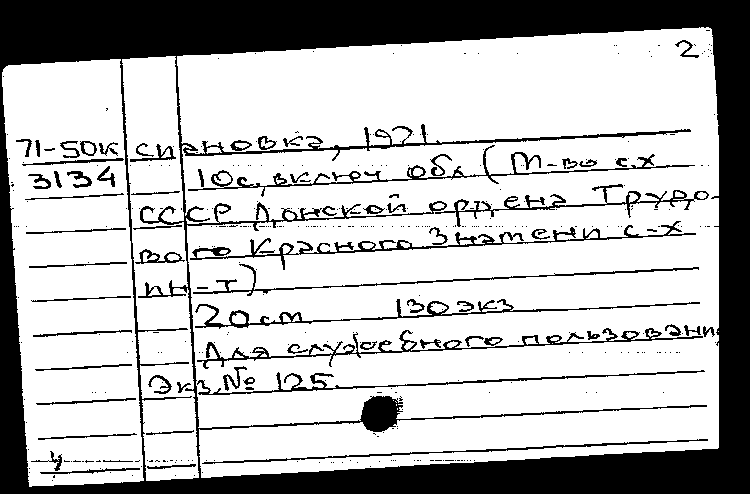 2
71-50к сиановка, 1971.
3134 10с, включ обл (М-во с.х
СССР Донской ордена Трудо-
вого Красного Знамени с-х
ин-т).
20 см 130 экз
Для служебного пользовани
Экз. № 125.
у